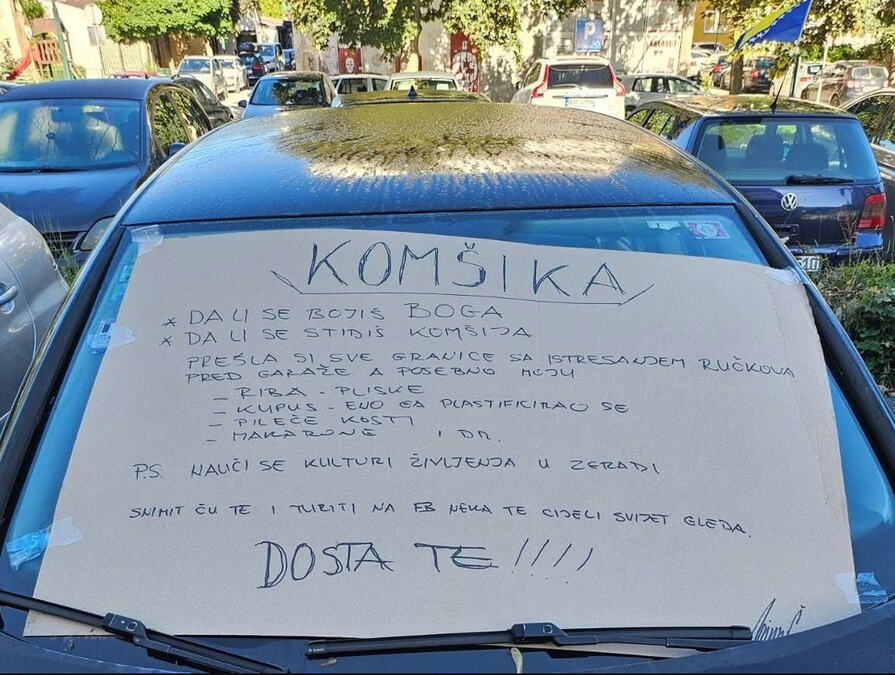 KOMŠIKA
* DA LI SE BOJIŠ BOGA
* DA LI SE STIDIŠ KOMŠIJA
PREŠLA SI SVE GRANICE SA ISTRESANJEM RUČKOVA
PRED GARAŽE A POSEBNO MOJU
- RIBA - PLISKE
- KUPUS - ENO GA PLASTIFICIRAO SE
- PILEČE KOSTI
- MAKARONE I DR.
P.S. NAUČI SE KULTURI ŽIVLJENJA U ZGRADI
SNIMIT ĆU TE I TURITI NA FB NEKA TE CIJELI SVIJET GLEDA.
DOSTA TE!!!!